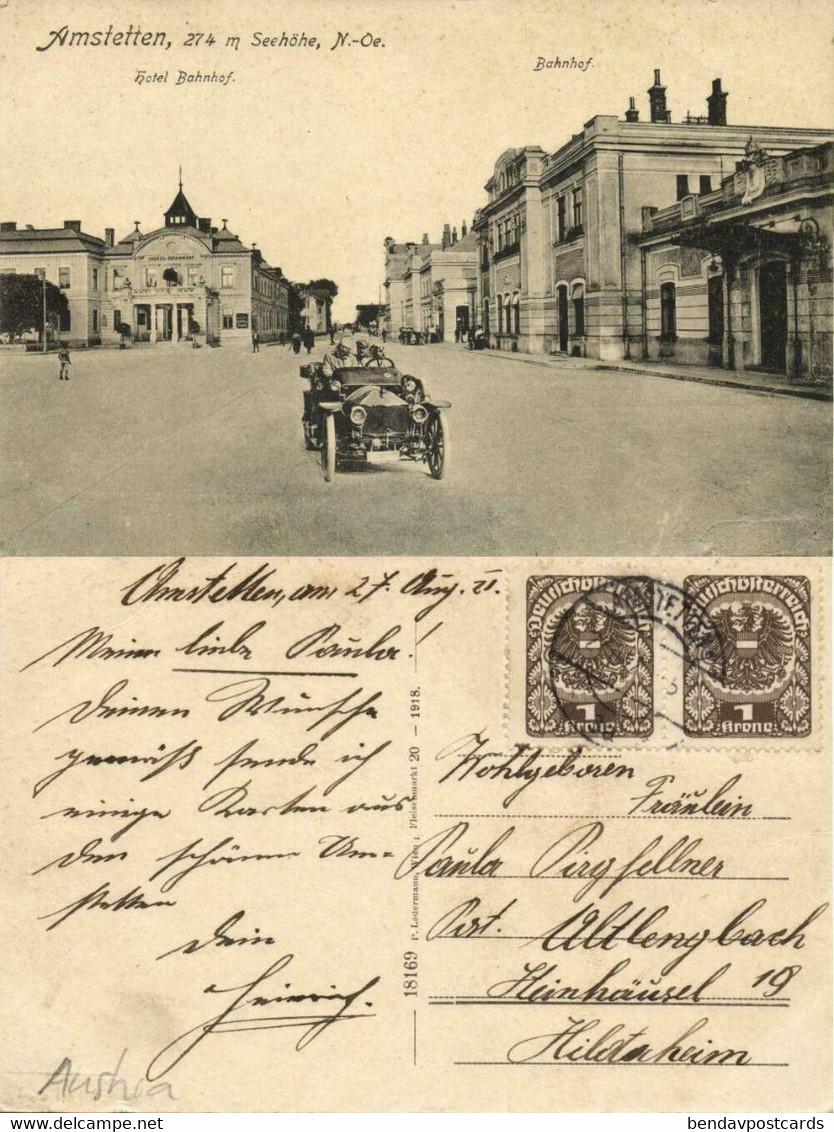 Amstetten, 274 m Seehöhe, N.-Oe.
Hotel Bahnhof.
Bahnhof.
HOTEL BAHNHOF
Amstetten, am 27. Aug. 21.
Meine liebe Paula!
Deinen Wunsche
gemäß sende ich
einige Karten aus
den schönen Am=
stetten
Dein
Heinrich.
18169 P. Ledermann, Wien I, Fleischmarkt 20 — 1918.
Deutschösterreich
1
Krone
Deutschösterreich
1
Krone
AMSTETTEN
Wohlgeboren
Fräulein
Paula Pirgfellner
Post. Altlengbach
Heinhäusel 19
Austria
bendavpostcards